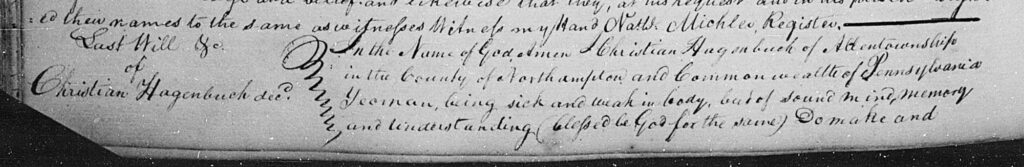 and likewise that they, at his request and in his presence
ed their names to the same as witnesses Witness my Hand Nathl. Michler, Register.
Last Will &c.
of
Christian Hagenbuch decd.
In the Name of God, Amen I Christian Hagenbuch of Allentownship
in the County of Northampton and Commonwealth of Pennsylvania
Yeoman, being sick and weak in body, but of sound mind, memory
and understanding (blessed be God for the same) Do make and